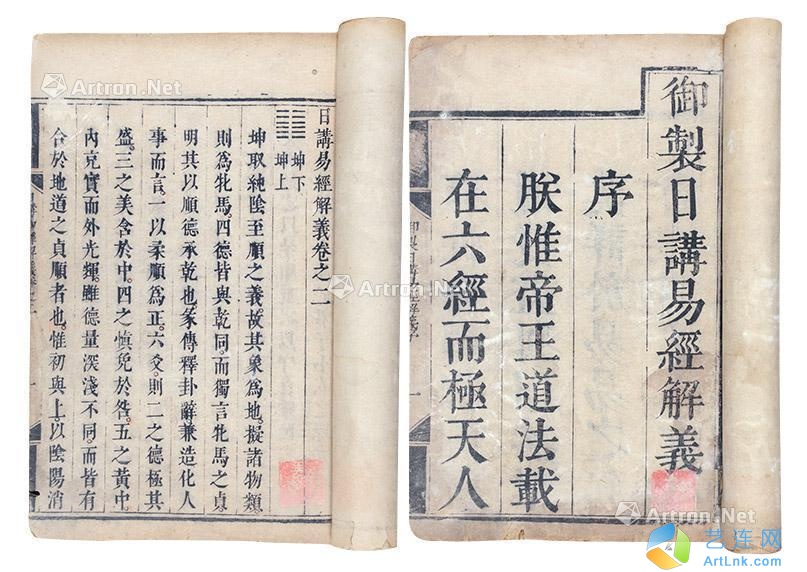 御製日講易經解義
序
朕惟帝王道法載
在六經而極天人
日講易經解義卷之二
坤下
坤上
坤取純陰至順之義。故其象為地。擬諸物類。
則為牝馬。四德皆與乾同。而獨言牝馬之貞。
明其以順德承乾也。彖傳釋卦辭兼造化人
事而言。一以柔順為正。六爻。則二之德極其
盛。三之美含於中。四之慎免於咎。五之黃中。
內充實而外光輝。雖德量深淺不同。而皆有
合於地道之貞順者也。惟初與上。以陰陽消
Artron.Net
Artron.Net
Artron.Net
Artron.Net
Artron.Net
艺连网
ArtLnk.Com